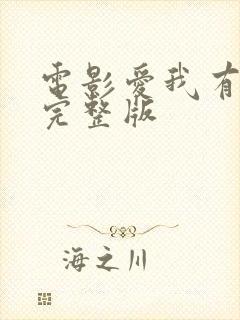 電影愛我有
完整版
海之川